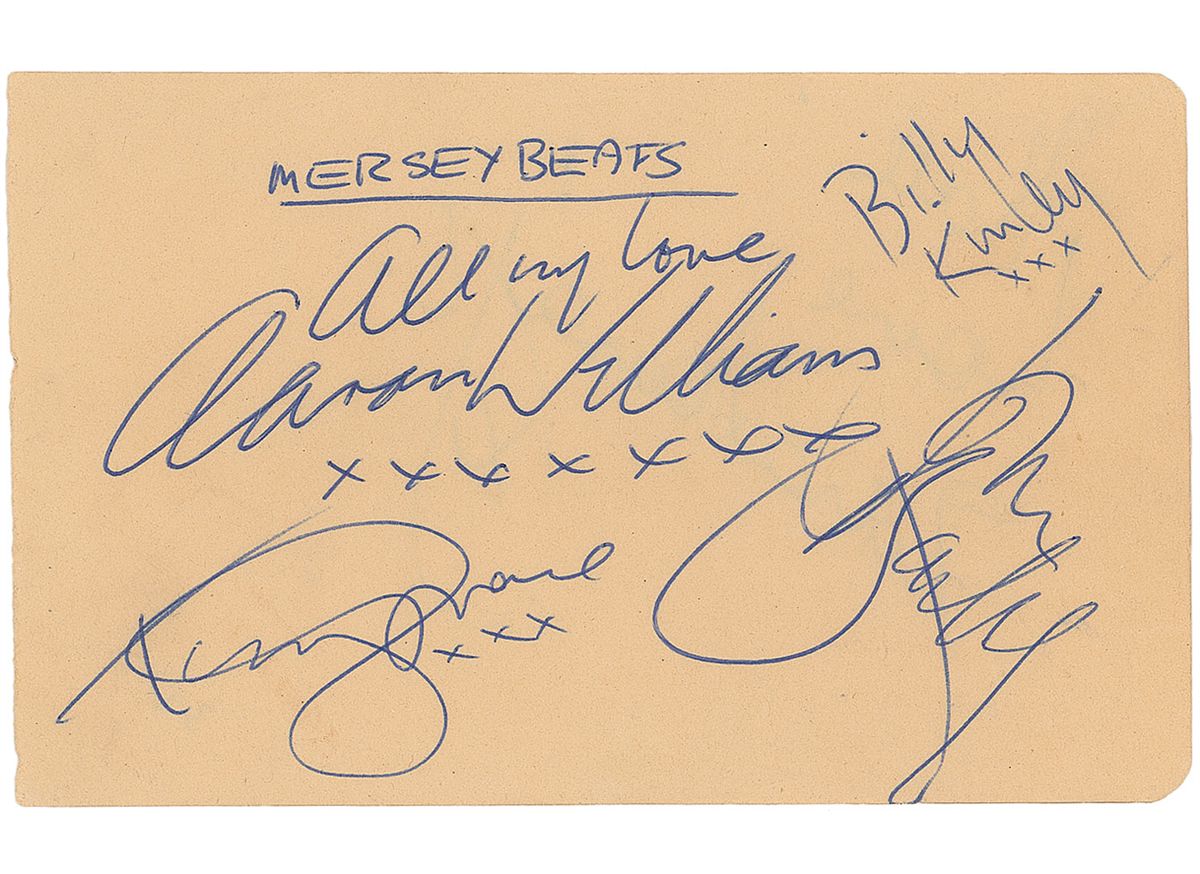 MERSEYBEATS
Billy
Kinsley
xxx
All my love
Aaron Williams
x x x x x x x x
John
Banks
Tony Crane
xxx